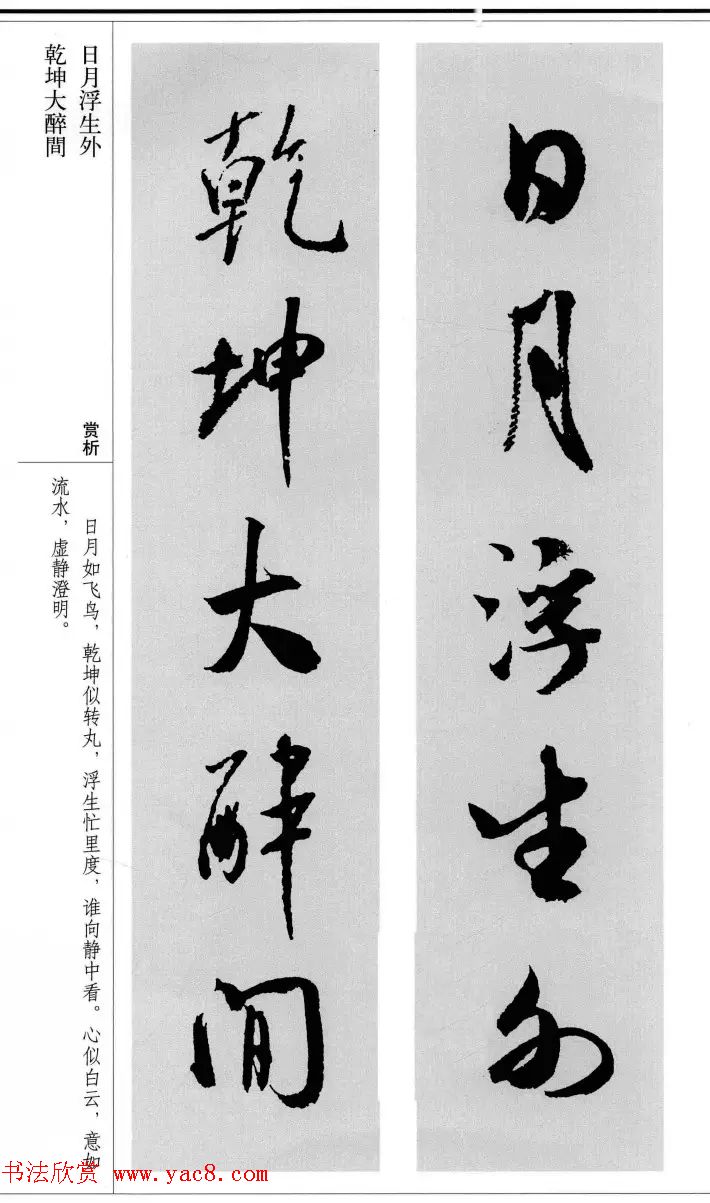 日月浮生外
乾坤大醉間
日月浮生外
乾坤大醉間
赏析
日月如飞鸟，乾坤似转丸，浮生忙里度，谁向静中看。心似白云，意如
流水，虚静澄明。
书法欣赏 www.yac8.com